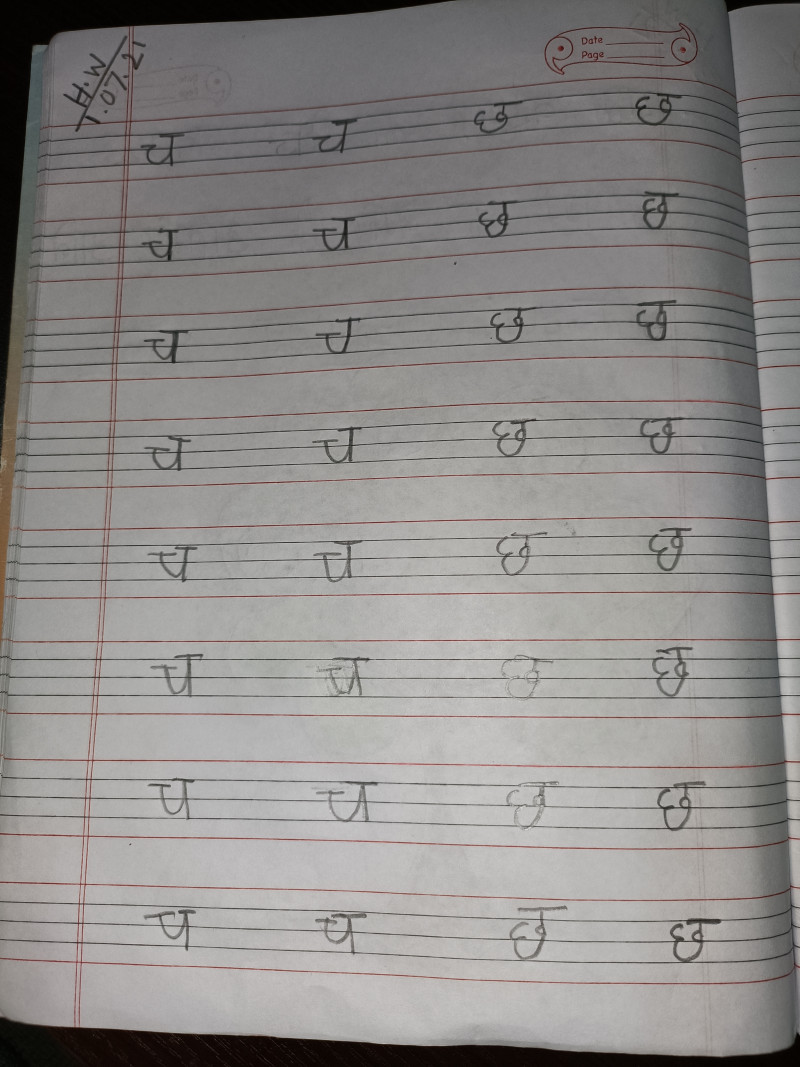 H.W
1.07.21
Date
Page
च च छ छ
च च छ छ
च च छ छ
च च छ छ
च च छ छ
च च छ छ
च च छ छ
च च छ छ